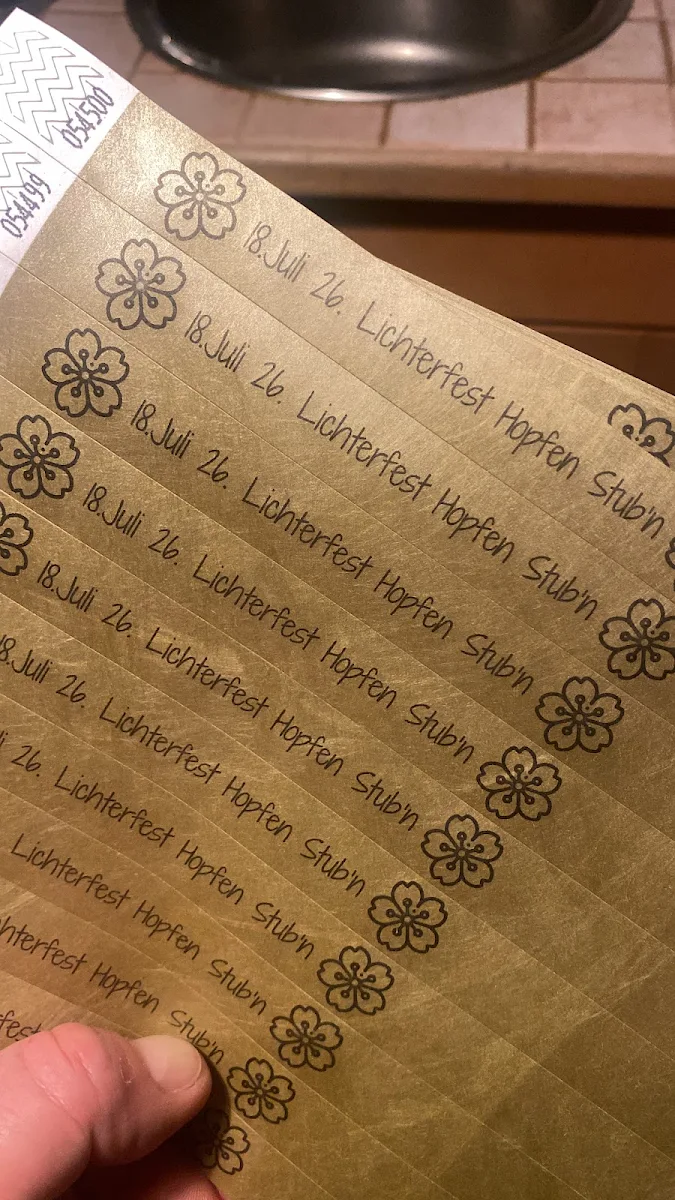 054500
18.Juli 26. Lichterfest Hopfen Stub'n
054499
18.Juli 26. Lichterfest Hopfen Stub'n
18.Juli 26. Lichterfest Hopfen Stub'n
18.Juli 26. Lichterfest Hopfen Stub'n
18.Juli 26. Lichterfest Hopfen Stub'n
8.Juli 26. Lichterfest Hopfen Stub'n
i 26. Lichterfest Hopfen Stub'n
Lichterfest Hopfen Stub'n
hterfest Hopfen Stub'n
fest